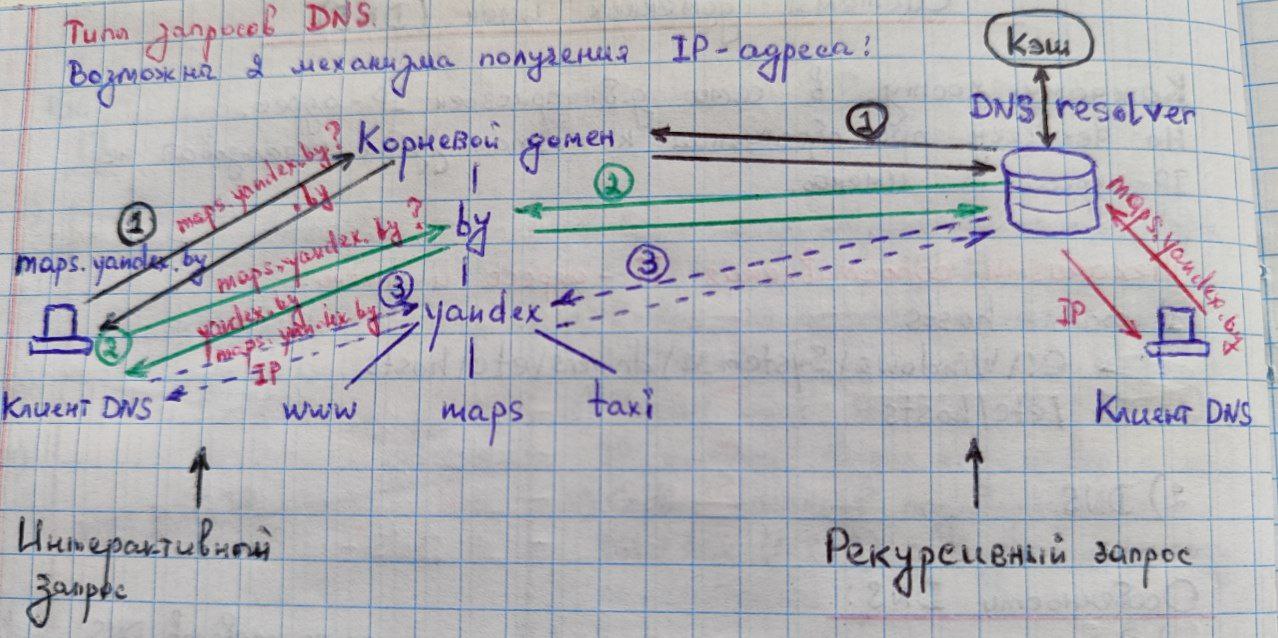 Типы запросов DNS.
Возможны 2 механизма получения IP-адреса:
Кэш
DNS resolver
Корневой домен
1
maps.yandex.by?
.by
1
maps.yandex.by
2
maps.yandex.by?
by
3
maps.yandex.by
yandex.by
3
yandex
maps.yandex.by
IP
2
IP
Клиент DNS
www
maps
taxi
Клиент DNS
Интерактивный
запрос
Рекурсивный запрос